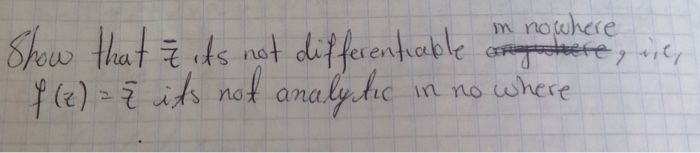 m nowhere
Show that z̅ its not differentiable anywhere, i.e,
f(z) = z̅ its not analytic in no where